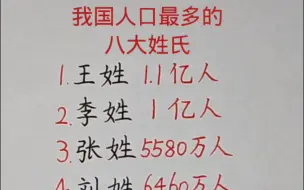 我国人口最多的
八大姓氏
1.王姓 1.1亿人
2.李姓 1亿人
3.张姓5580万人
4.刘姓6460万人